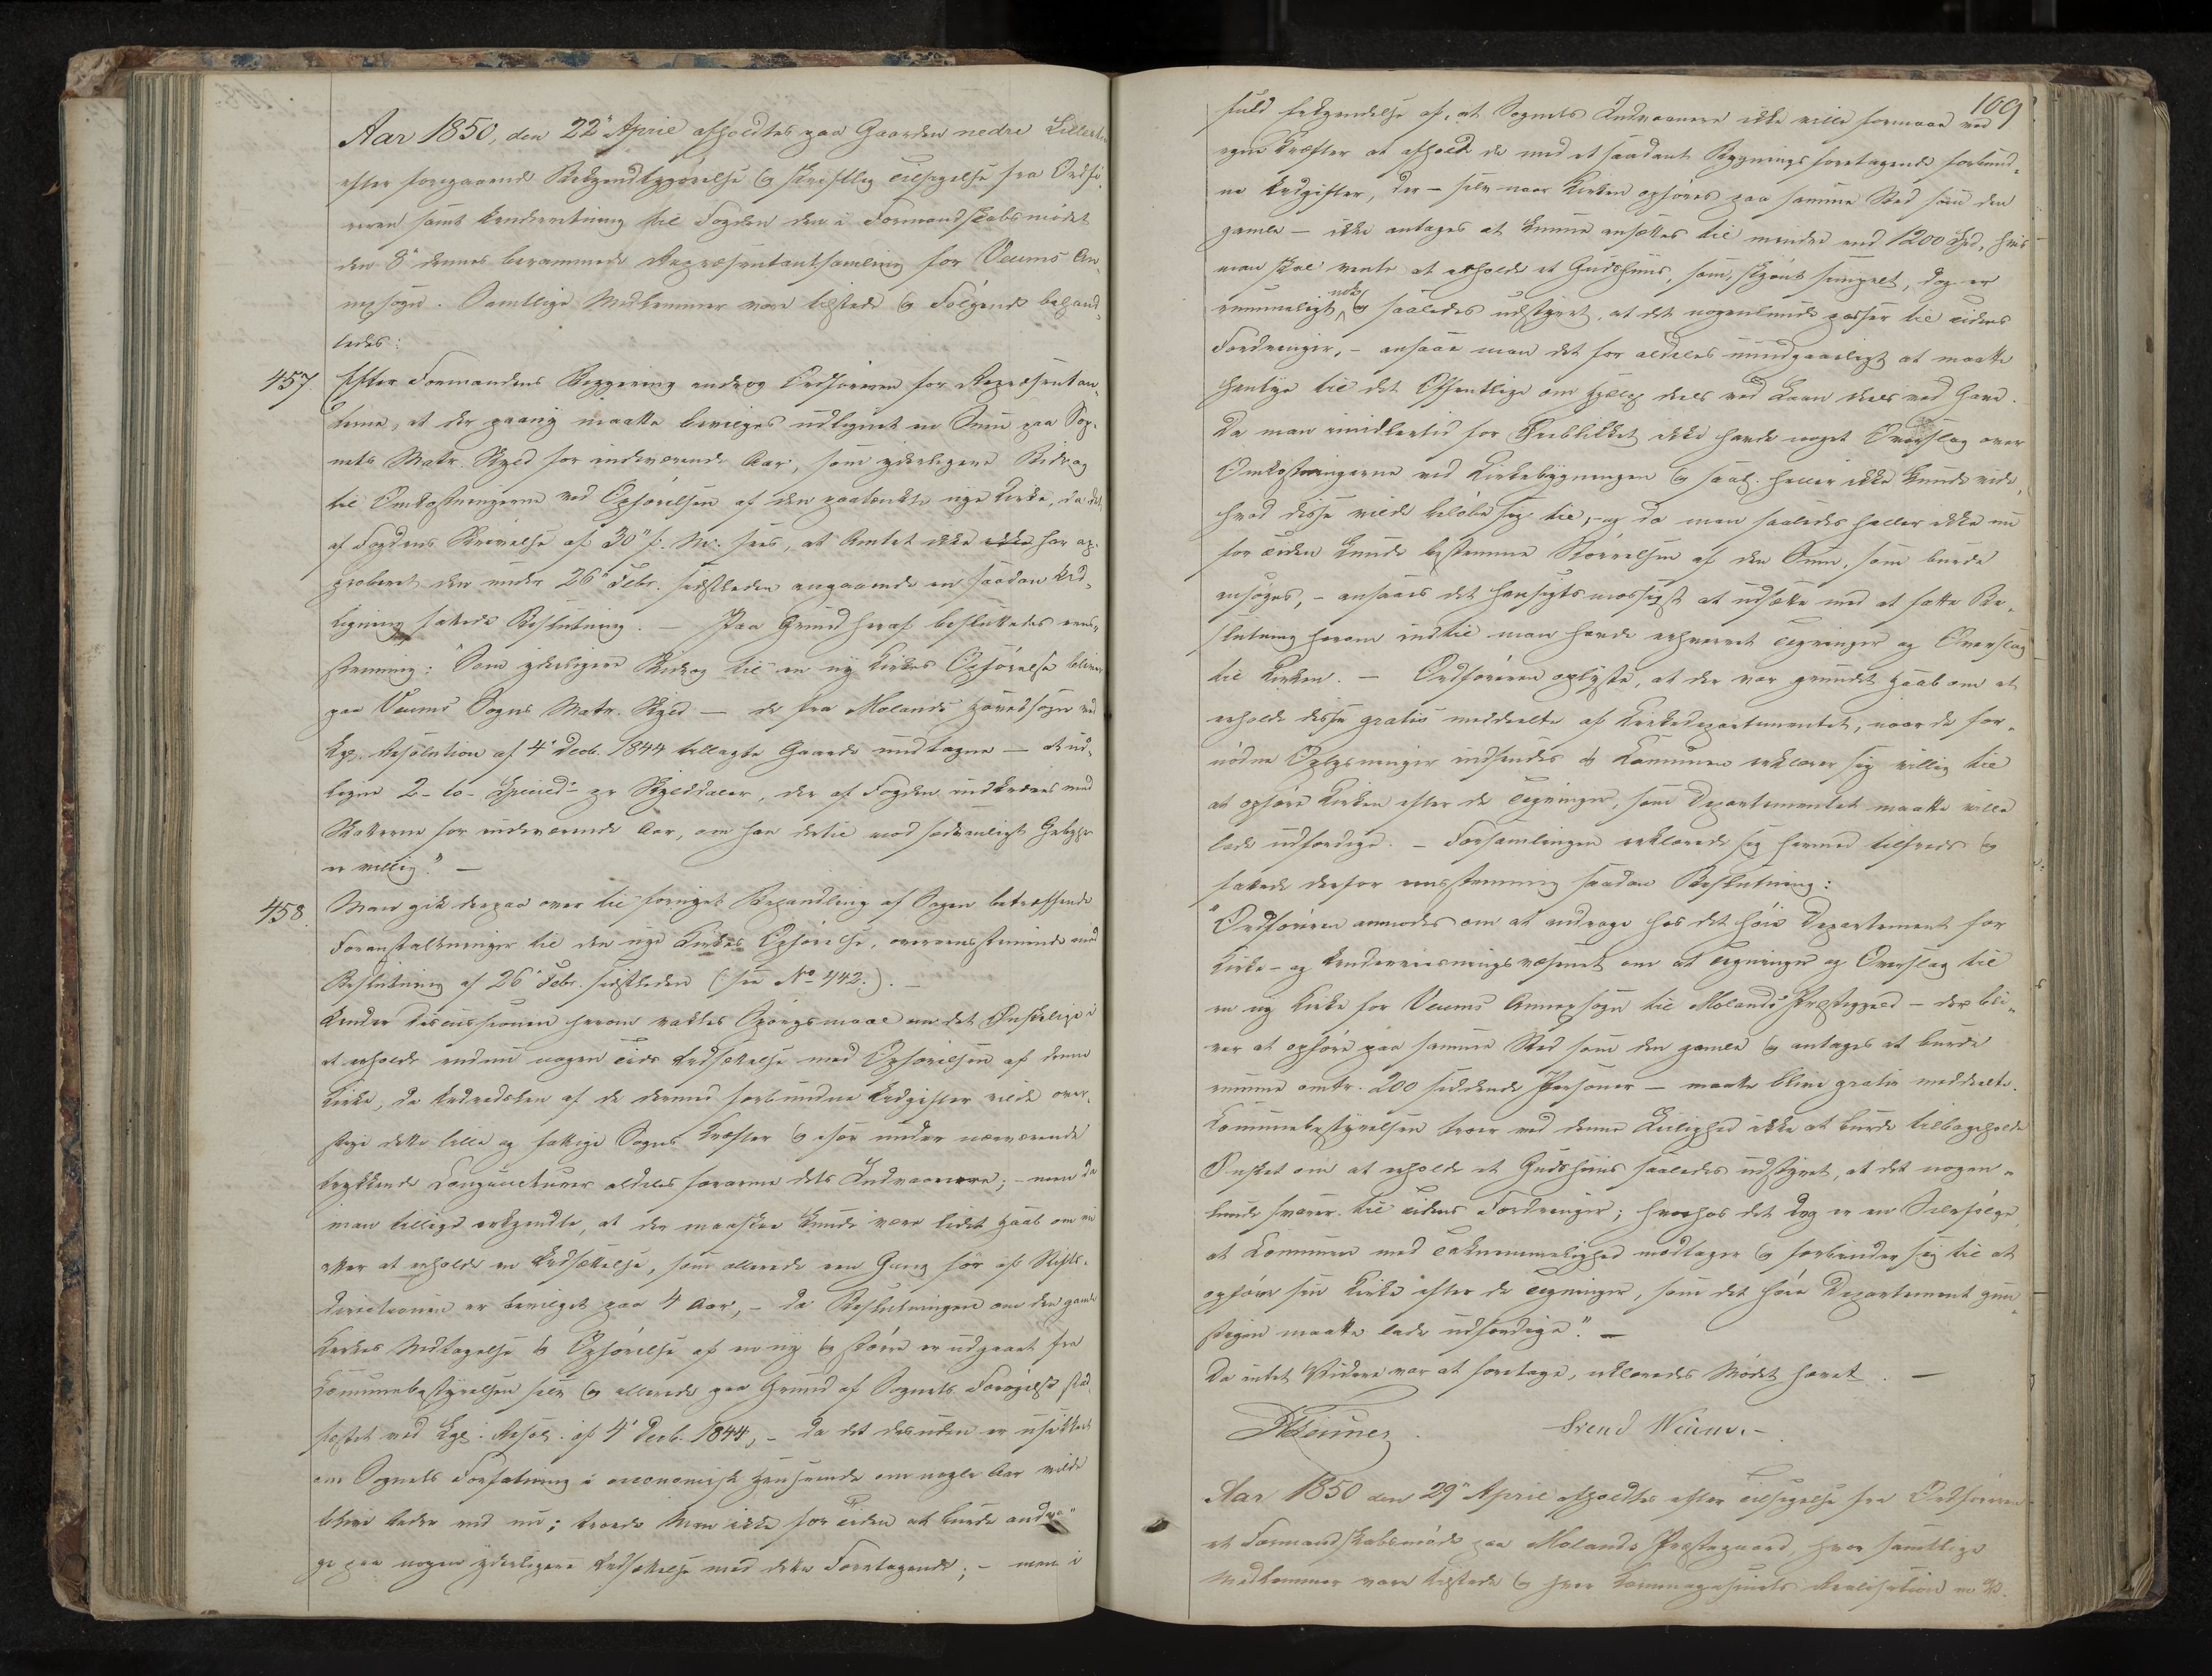 Aar 1850, den 22' April afholdtes paa Gaarden nedre
efter foregaaende Bekjendtgjørelse og skriftlig Tilsigelse fra Ordfø-
reren samt Underretning til Fogden den i Formandskabsmødet
den 8' dennes berammede Repræsentantsamling for Veums An-
nexsogn. Samtlige Medlemmer vare tilstede og Følgende behand-
ledes:
457. Efter Formandens Begjering androg Ordføreren for Repræsentan-
terne, at der paany maatte bevilges udlignet en Sum paa Sog-
nets Matr. Skyld for indeværende Aar, som yderligere Bidrag
til Omkostningerne ved Opførelsen af den paatænkte nye Kirke, da det
af Fogdens Skrivelse af 30' f. M. sees, at Amtet ikke ikke har ap-
proberet den under 26' Febr. sidstleden angaaende en saadan Ud-
ligning fattede Beslutning. — Paa Grund heraf besluttedes eens-
stemmig: "Som yderligere Bidrag til en ny Kirkes Opførelse bliver
paa Veums Sogns Matr. Skyld — de fra Molands Hovedsogn ved
Kgl. Resolution af 4' Decb. 1844 tillagte Gaarde undtagne — at ud-
ligne 2 - to - Specied. pr Skylddaler, der af Fogden indkræves med
Skatterne for indeværende Aar, om han dertil mod sædvanligt Gebyhr
er villig." —
458. Man gik derpaa over til fornyet Behandling af Sagen betræffende
Foranstaltninger til den nye Kirkes Opførelse, overeensstemmende med
Beslutning af 26' Febr. sidstleden (: see No 442:). —
Under Discussionen herom vaktes Spørgsmaal om det Ønskelige i
at erholde endnu nogen Tids Udsættelse med Opførelsen af denne
Kirke, da Udredslen af de dermed forbundne Udgifter vilde over-
stige dette lille og fattige Sogns Kræfter og især under nærværende
trykkende Conjuncturer aldeles forarme dets Indvaanere; - men da
man tillige erkjendte, at der maaskee kunde være lidet Haab om nu
atter at erholde en Udsættelse, som allerede een Gang før af Stifts-
directionen er bevilget paa 4 Aar, - da Beslutningen om den gamle
Kirkes Nedtagelse og Opførelse af en ny og større er udgaaet fra
Communebestyrelsen selv og allerede paa Grund af Sognets Forøgelse stad-
fæstet ved Kgl. Resol. af 4' Decb. 1844, - da det desuden er usikkert
om Sognets Forfatning i oeconomisk Henseende om nogle Aar vilde
blive bedre end nu; troede Man ikke for Tiden at burde andra-
ge paa nogen yderligere Udsættelse med dette Foretagende; - men i
109
fuld Erkjendelse af, at Sognets Indvaanere ikke ville formaae ved
egne Kræfter at afholde de med et saadant Bygnings foretagende forbund-
ne Udgifter, der - selv naar Kirken opføres paa samme Sted som den
gamle — ikke antages at kunne ansættes til mindre end 1200 Spd., hvis
man skal vente at erholde et Gudshuus, som, skjønt simpelt, dog er
rummeligt nok og saaledes udstyret, at det nogenlunde passer til Tidens
Fordringer, - ansaae man det for aldeles uundgaaeligt at maatte
hentye til det Offentlige om Hjælp deels ved Laan deels ved Gave.
Da man imidlertid for Øieblikket ikke havde noget Overslag over
Omkostningerne ved Kirkebygningen og saal. heller ikke kunde vide,
hvad disse vilde beløbe sig til, - og da man saaledes heller ikke nu
for Tiden kunde bestemme Størrelsen af den Sum, som burde
ansøges, - ansaaes det hensigtsmæssigst at udsætte med at fatte Be-
slutning herom indtil man havde erhvervet Tegninger og Overslag
til Kirken. — Ordføreren oplyste, at der var grundet Haab om at
erholde disse gratis meddeelte af Kirkedepartementet, naar de for-
nødne Oplysninger indsendes og Communen erklærer sig villig til
at opføre Kirken efter de Tegninger, som Departementet maatte ville
lade udfærdige. - Forsamlingen erklærede sig hermed tilfreds og
fattede derfor eensstemmig saadan Beslutning:
"Ordføreren anmodes om at andrage hos det høie Departement for
Kirke- og Underviisningsvæsenet om at Tegninger og Overslag til
en ny Kirke for Veums Annexsogn til Molands Præstegjeld — der bli-
ver at opføre paa samme Sted som den gamle og antages at burde
rumme omtr. 200 siddende Personer — maatte blive gratis meddeelte.
Communebestyrelsen troer ved denne Leilighed ikke at burde tilbageholde
Ønsket om at erholde et Gudshuus saaledes udstyret, at det nogen-
lunde svarer til Tidens Fordringer; hvorhos det dog er en Selvfølge,
at Communen med Taknemmelighed modtager og forbinder sig til at
opføre sin Kirke efter de Tegninger, som det høie Departement gun-
stigen maatte lade udfærdige." —
Da intet Videre var at foretage, erklæredes Mødet hævet. —
Svend Weum. -
Aar 1850 den 29' April afholdtes efter Tilsigelse fra Ordføreren
et Formandskabsmøde paa Molands Præstegaard, hvor samtlige
Medlemmer vare tilstede og hvor Kornmagasinets Realisation